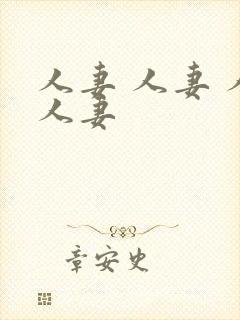 人妻 人妻 人
人妻
章安史